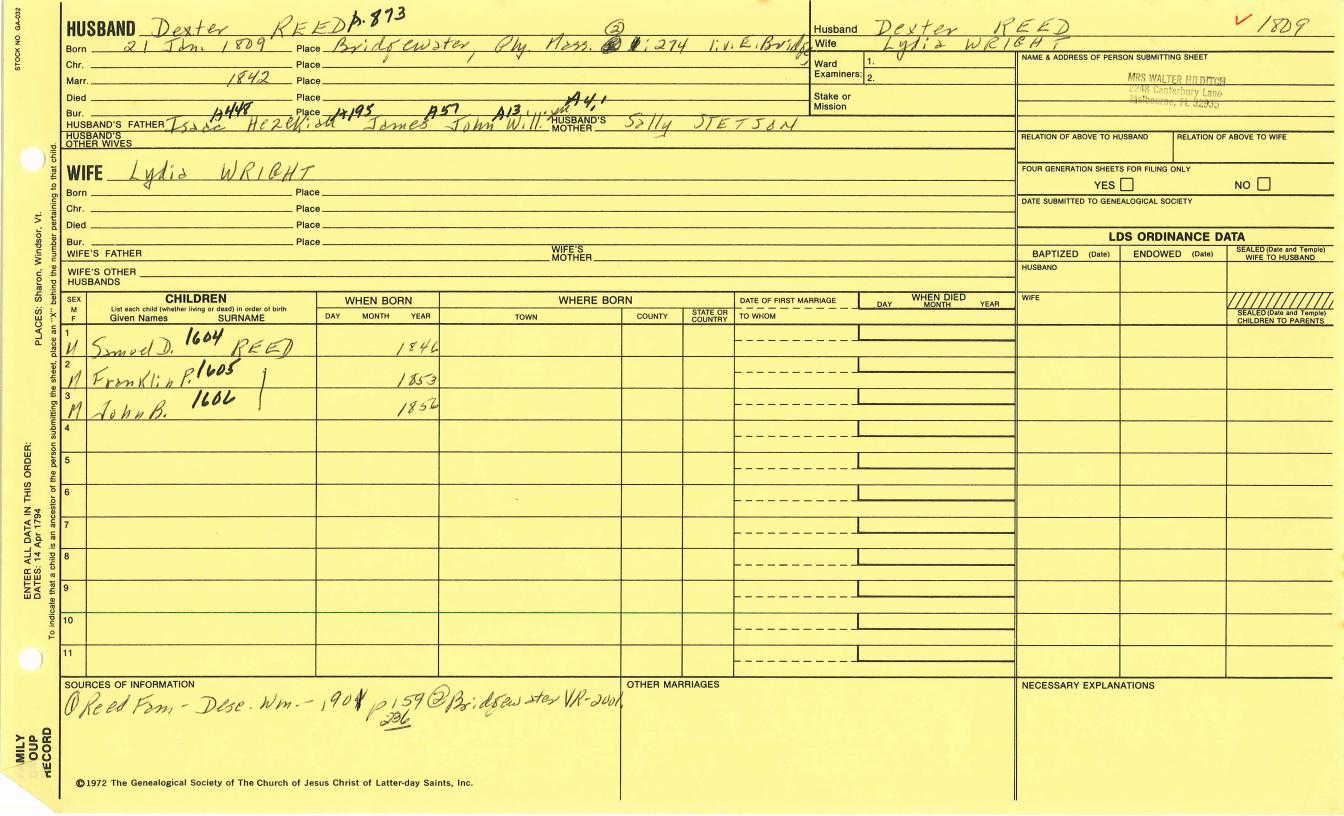 STOCK NO. GA-032
HUSBAND Dexter REED p.873
Born 21 Jan. 1809 Place Bridgewater, Ply. Mass. ② 1:274 liv. E. Bridge
Chr. Place
Marr. 1842 Place
Died Place
Bur. Place
A448 A195 A57 A13 A4,1
HUSBAND'S FATHER Isaac Hezekiah James John Will HUSBAND'S MOTHER Sally STETSON
HUSBAND'S OTHER WIVES
WIFE Lydia WRIGHT
Born Place
Chr. Place
Died Place
Bur. Place
WIFE'S FATHER WIFE'S MOTHER
WIFE'S OTHER HUSBANDS
Husband Dexter REED ✓ 1809
Wife Lydia WRIGHT
Ward Examiners: 1.
2.
Stake or Mission
NAME & ADDRESS OF PERSON SUBMITTING SHEET
MRS WALTER HILDITCH
2248 Canterbury Lane
Melbourne, FL 32935
RELATION OF ABOVE TO HUSBAND RELATION OF ABOVE TO WIFE
FOUR GENERATION SHEETS FOR FILING ONLY
YES NO
DATE SUBMITTED TO GENEALOGICAL SOCIETY
LDS ORDINANCE DATA
BAPTIZED (Date) ENDOWED (Date) SEALED (Date and Temple) WIFE TO HUSBAND
HUSBAND
WIFE
SEALED (Date and Temple) CHILDREN TO PARENTS
SEX M F
CHILDREN
List each child (whether living or dead) in order of birth
Given Names SURNAME
WHEN BORN
DAY MONTH YEAR
WHERE BORN
TOWN COUNTY STATE OR COUNTRY
DATE OF FIRST MARRIAGE
TO WHOM
WHEN DIED
DAY MONTH YEAR
1 M Samuel D. 1604 REED 1846
2 M Franklin P. 1605 1853
3 M John B. 1606 1856
4
5
6
7
8
9
10
11
SOURCES OF INFORMATION
① Reed Fam - Desc. Wm. - 1901 p 159 ② Bridgewater VR - 2001
236
OTHER MARRIAGES
NECESSARY EXPLANATIONS
©1972 The Genealogical Society of The Church of Jesus Christ of Latter-day Saints, Inc.
ENTER ALL DATA IN THIS ORDER:
DATES: 14 Apr 1794
PLACES: Sharon, Windsor, Vt.
To indicate that a child is an ancestor of the person submitting the sheet, place an "X" behind the number pertaining to that child.
MILY
OUP
RECORD